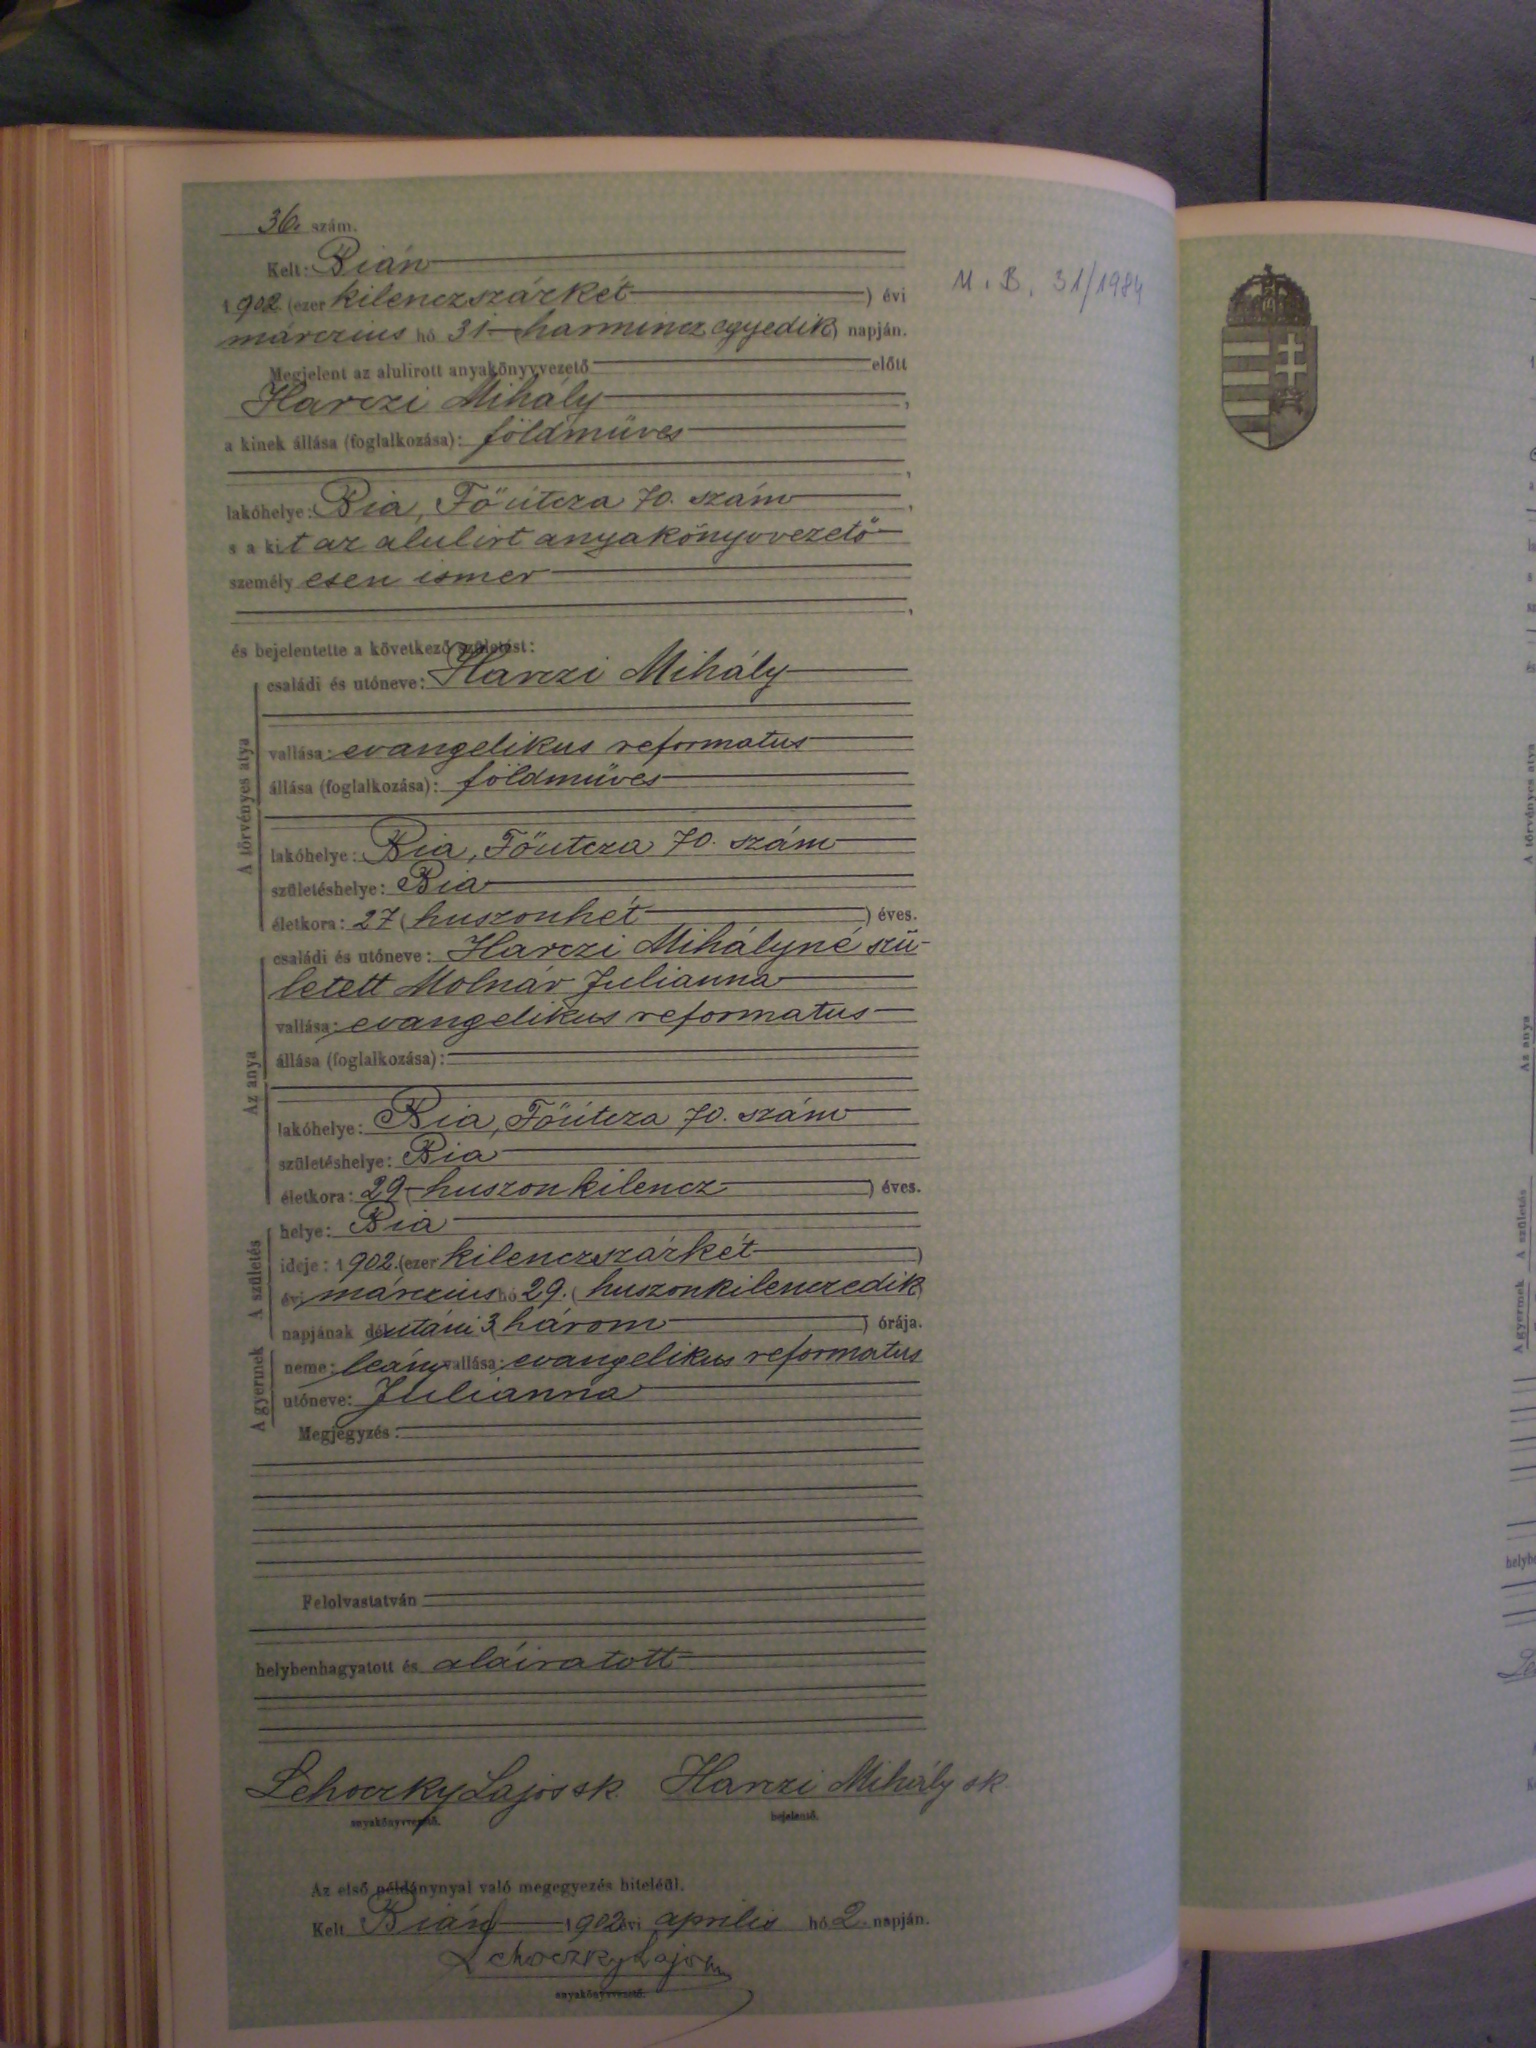 36. szám.
Kelt: Bián
1902 (ezer kilenczszázkét) évi
márczius hó 31 (harminczegyedik) napján.
M. B. 31/1984
Megjelent az alulirott anyakönyvvezető előtt
Harczi Mihály,
a kinek állása (foglalkozása): földműves
lakóhelye: Bia, Főútcza 70. szám,
s a kit az alulirt anyakönyvvezető
személyesen ismer
és bejelentette a következő születést:
A törvényes atya
családi és utóneve: Harczi Mihály
vallása: evangelikus reformatus
állása (foglalkozása): földműves
lakóhelye: Bia, Főutcza 70. szám
születéshelye: Bia
életkora: 27 (huszonhét) éves.
Az anya
családi és utóneve: Harczi Mihályné szü-
letett Molnár Julianna
vallása: evangelikus reformatus
állása (foglalkozása):
lakóhelye: Bia, Főútcza 70. szám
születéshelye: Bia
életkora: 29 (huszonkilencz) éves.
A születés
helye: Bia
ideje: 1902. (ezer kilenczszázkét)
évi márczius hó 29. (huszonkilenczedik)
napjának délutáni 3 (három) órája.
A gyermek
neme: leány vallása: evangelikus reformatus
utóneve: Julianna
Megjegyzés:
Felolvastatván
helybenhagyatott és aláiratott
Lehoczky Lajos sk. Harczi Mihály sk
anyakönyvvezető. bejelentő.
Az első példánynyal való megegyezés hiteléül.
Kelt Bián 1902 évi aprilis hó 2. napján.
Lehoczky Lajos
anyakönyvvezető.
A törvényes atya
Az anya
A születés
A gyermek